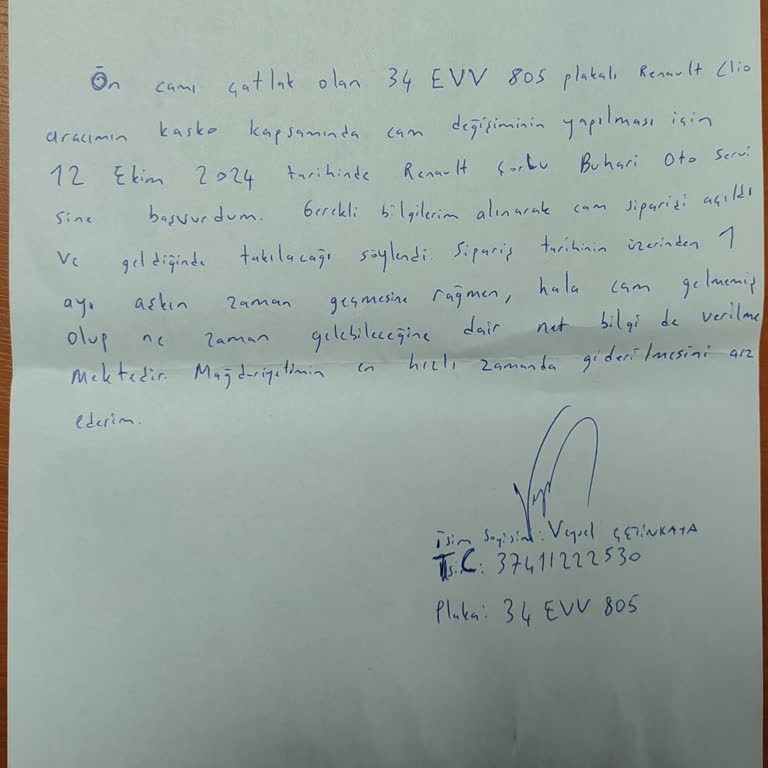 Ön camı çatlak olan 34 EVV 805 plakalı Renault Clio
aracımın kasko kapsamında cam değişiminin yapılması için
12 Ekim 2024 tarihinde Renault Çorlu Buhari Oto Servi
sine başvurdum. Gerekli bilgilerim alınarak cam siparişi açıldı
ve geldiğinde takılacağı söylendi. Sipariş tarihinin üzerinden 1
ayı aşkın zaman geçmesine rağmen, hala cam gelmemiş
olup ne zaman gelebileceğine dair net bilgi de verilme
mektedir. Mağduriyetimin en hızlı zamanda giderilmesini arz
ederim.
İsim Soyisim: Veysel ÇETİNKAYA
T.C: 37411222530
Plaka: 34 EVV 805